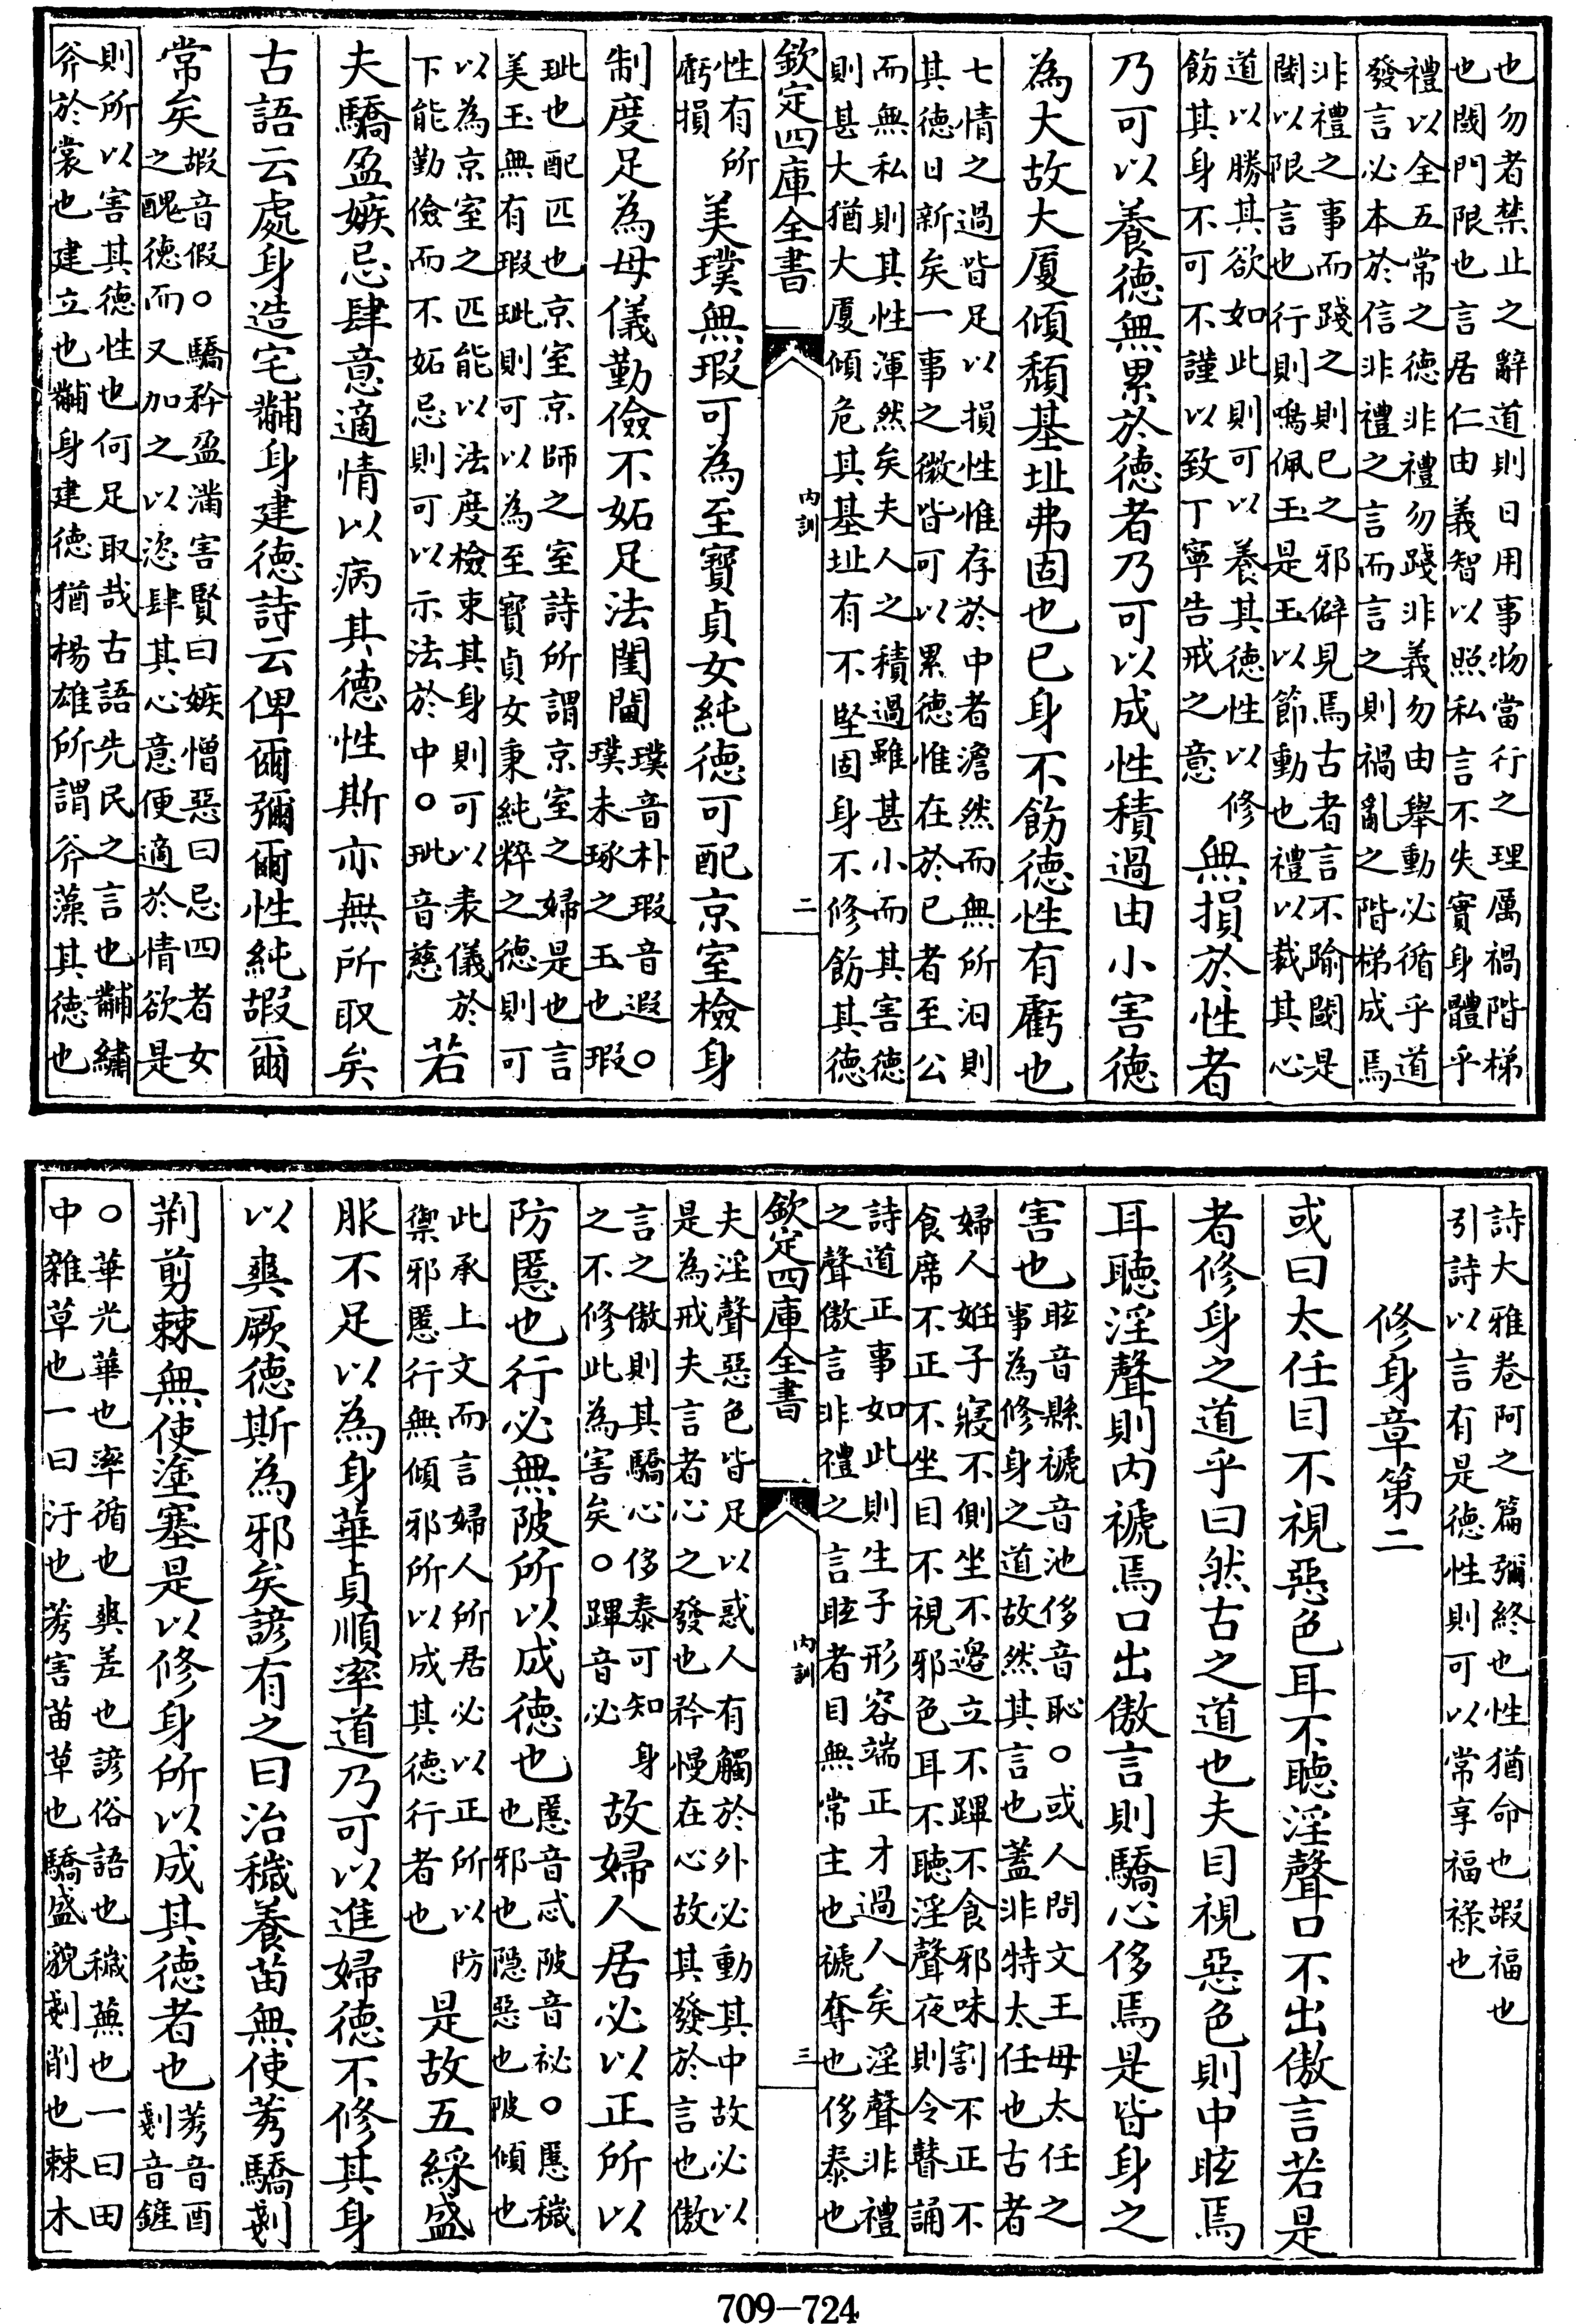 也勿者禁止之辭道則日用事物當行之理厲禍階梯
也閾門限也言居仁由義智以照私言不失實身體乎
禮以全五常之德非禮勿踐非義勿由舉動必循乎道
發言必本於信非禮之言而言之則禍亂之階梯成焉
非禮之事而踐之則已之邪僻見焉古者言不踰閾是
閾以限言也行則鳴佩玉是玉以節動也禮以裁其心
道以勝其欲如此則可以養其德性以修
飭其身不可不謹以致丁寧告戒之意
無損於性者
乃可以養德無累於德者乃可以成性積過由小害德
為大故大厦傾頹基址弗固也已身不飭德性有虧也
七情之過皆足以損性惟存於中者澹然而無所汩則
其德日新矣一事之微皆可以累德惟在於已者至公
而無私則其性渾然矣夫人之積過雖甚小而其害德
則甚大猶大厦傾危其基址有不堅固身不修飭其德
欽定四庫全書
內訓
二
性有所
虧損
美璞無瑕可為至寶貞女純德可配京室檢身
制度足為母儀勤儉不妬足法閨閫
璞音朴瑕音遐○
璞未琢之玉也瑕
玼也配匹也京室京師之室詩所謂京室之婦是也言
美玉無有瑕玼則可以為至寶貞女秉純粹之德則可
以為京室之匹能以法度檢束其身則可以表儀於
下能勤儉而不妬忌則可以示法於中○玼音慈
若
夫驕盈嫉忌肆意適情以病其德性斯亦無所取矣
古語云處身造宅黼身建德詩云俾爾彌爾性純嘏爾
常矣
嘏音假○驕矜盈滿害賢曰嫉憎惡曰忌四者女
之醜德而又加之以恣肆其心意便適於情欲是
則所以害其德性也何足取哉古語先民之言也黼繡
斧於裳也建立也黼身建德猶楊雄所謂斧藻其德也
詩大雅卷阿之篇彌終也性猶命也嘏福也
引詩以言有是德性則可以常享福祿也
修身章第二
或曰太任目不視惡色耳不聽淫聲口不出傲言若是
者修身之道乎曰然古之道也夫目視惡色則中眩焉
耳聽淫聲則內褫焉口出傲言則驕心侈焉是皆身之
害也
眩音縣褫音池侈音恥○或人問文王母太任之
事為修身之道故然其言也蓋非特太任也古者
婦人妊子寢不側坐不邊立不蹕不食邪味割不正不
食席不正不坐目不視邪色耳不聽淫聲夜則令瞽誦
詩道正事如此則生子形容端正才過人矣淫聲非禮
之聲傲言非禮之言眩者目無常主也褫奪也侈泰也
欽定四庫全書
內訓
三
夫淫聲惡色皆足以惑人有觸於外必動其中故必以
是為戒夫言者心之發也矜慢在心故其發於言也傲
言之傲則其驕心侈泰可知身
之不修此為害矣○蹕音必
故婦人居必以正所以
防慝也行必無陂所以成德也
慝音忒陂音祕○慝穢
也邪也隠惡也陂傾也
此承上文而言婦人所居必以正所以防
禦邪慝行無傾邪所以成其德行者也
是故五綵盛
服不足以為身華貞順率道乃可以進婦德不修其身
以爽厥德斯為邪矣諺有之曰治穢養苗無使莠驕剗
荆剪棘無使塗塞是以修身所以成其德者也
莠音酉
剗音鏟
○華光華也率循也爽差也諺俗語也穢蕪也一曰田
中雜草也一曰汙也莠害苗草也驕盛貌剗削也棘木
709-724